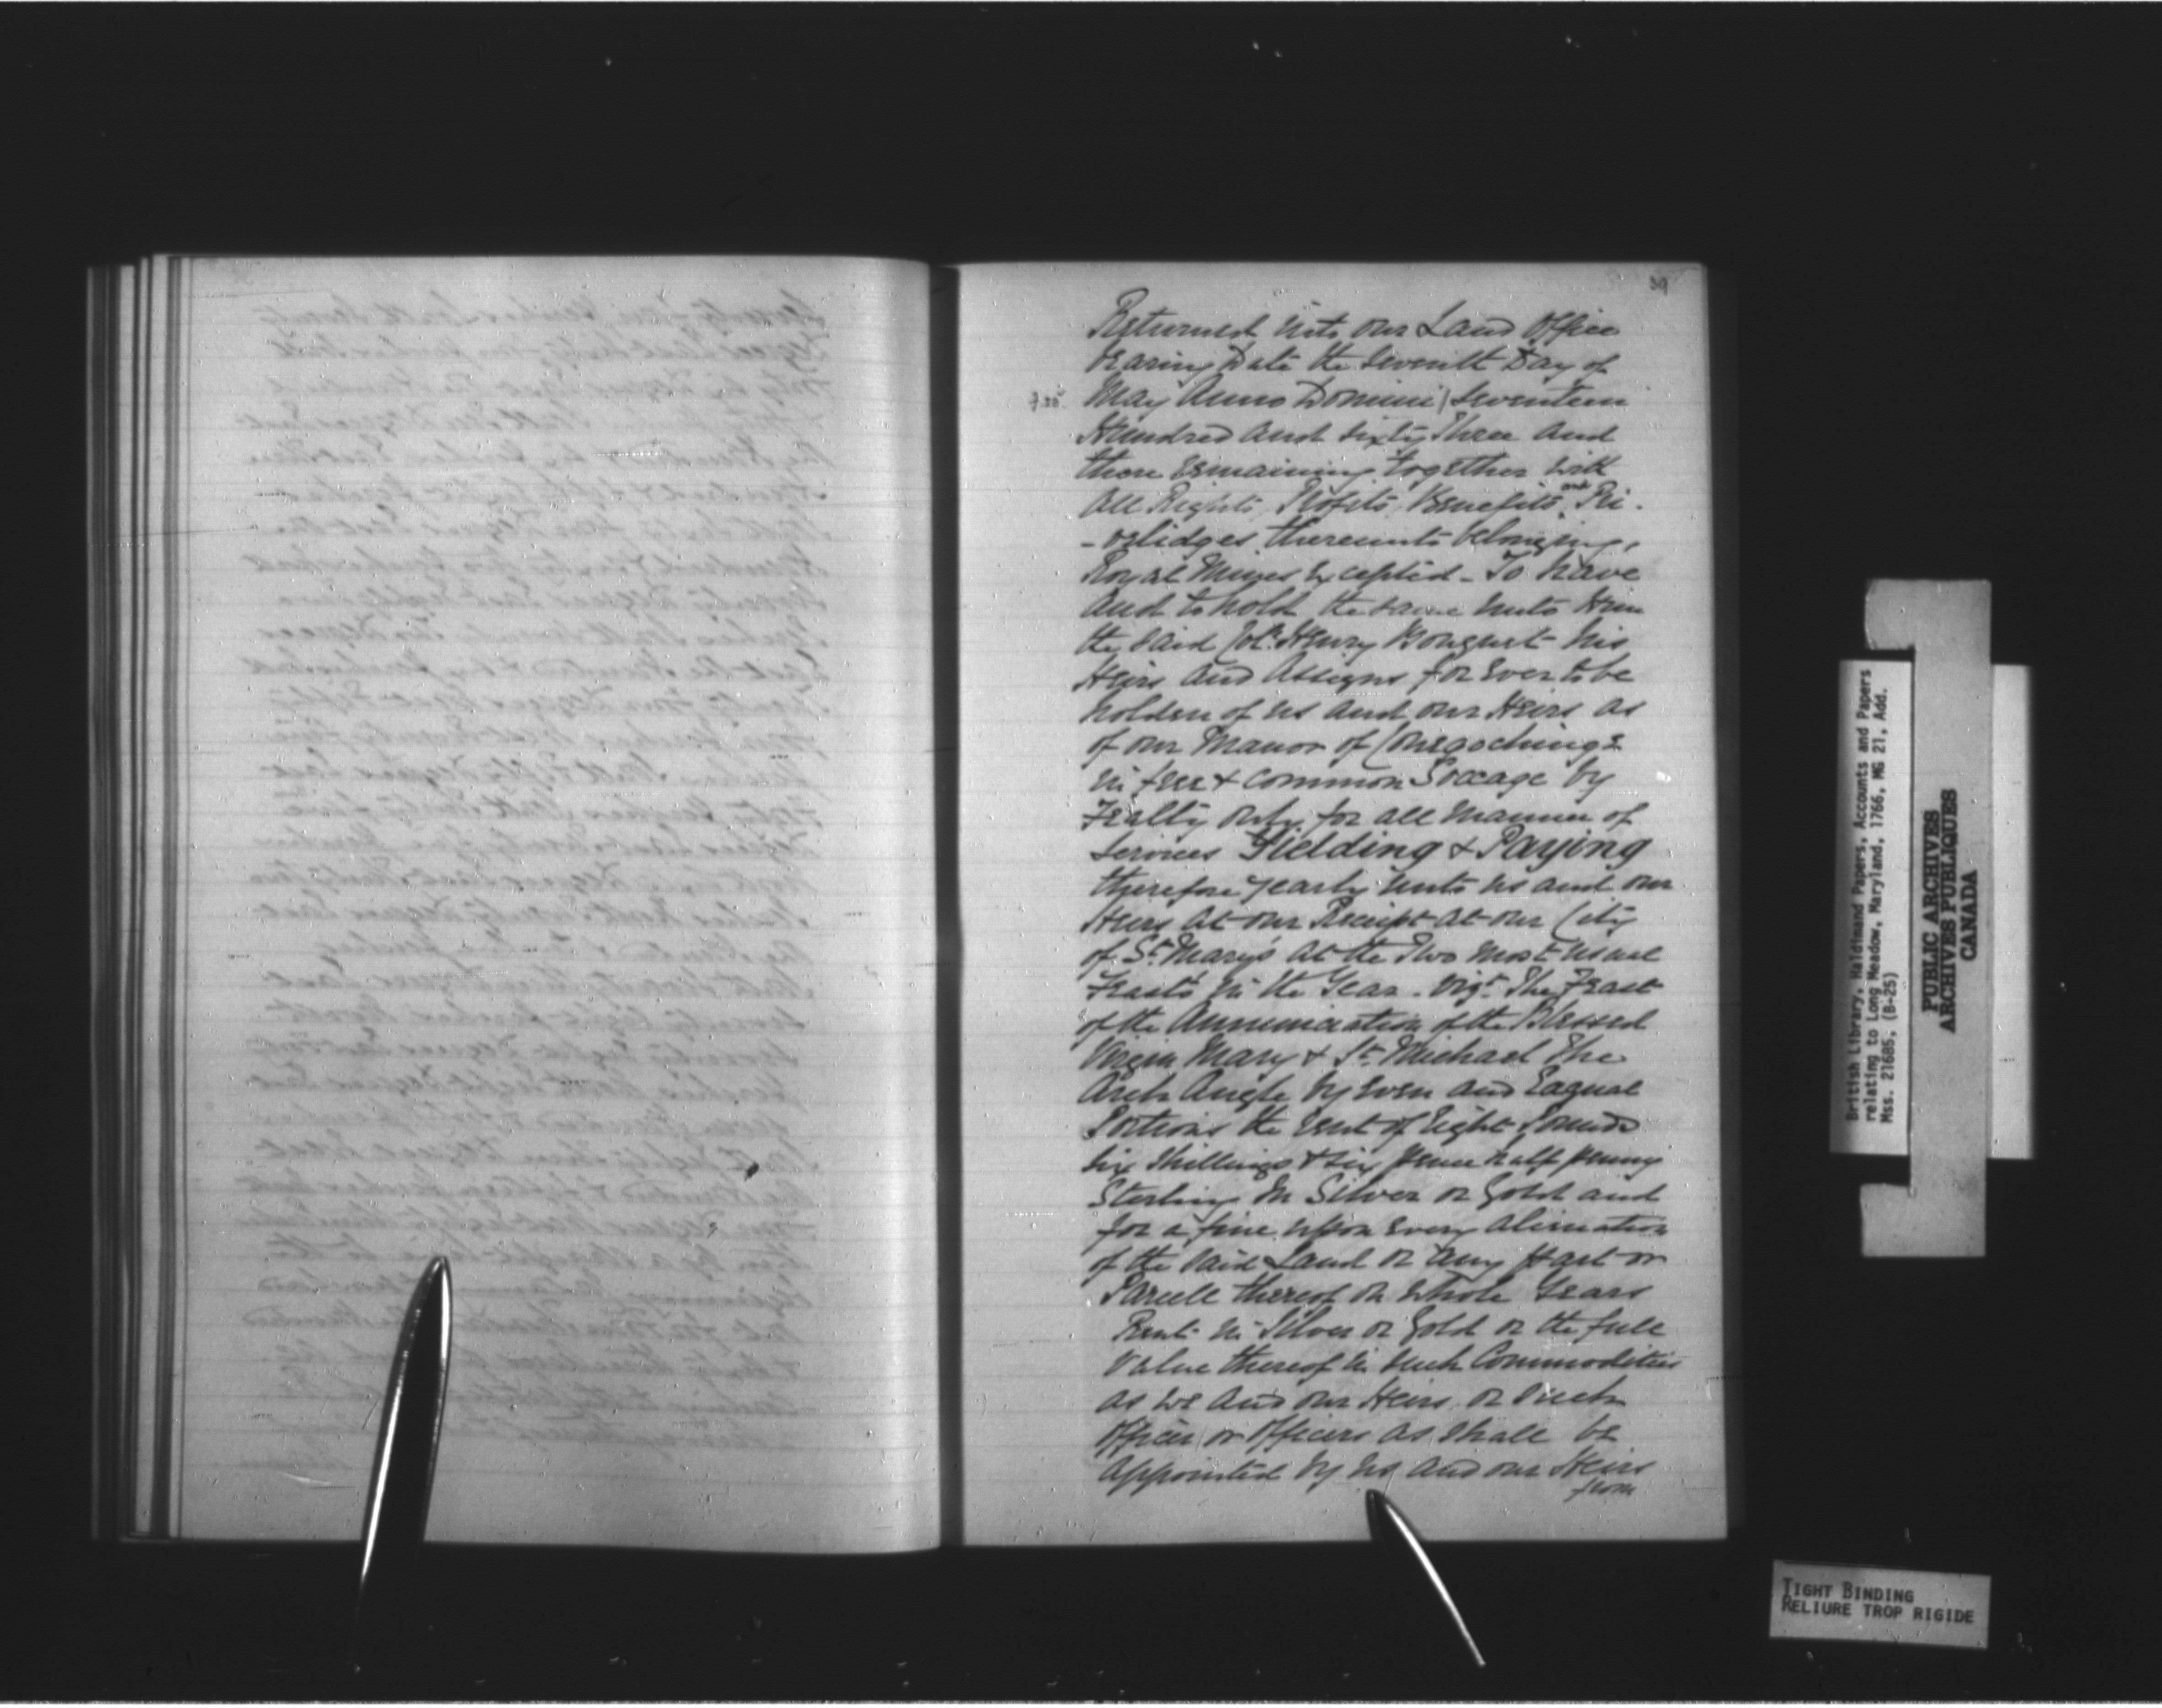 39
Returned into our Land Office
bearing Date the Seventh Day of
May Anno Domini) Seventeen
Hundred and Sixty Three and
there remaining together with
all Rights, Profits, Benefits, and Pri-
-veledges thereunto belonging,
Royal Mines Excepted - To have
and to hold the same unto Him
the said Col: Henry Bouquet his
Heirs and Assigns for Ever to be
holden of us and our Heirs as
of our Manor of Conegocheige
in free & common Soccage by
Fealty only for all manner of
Services Yielding & Paying
therefore yearly unto us and our
Heirs at our Receipt at our City
of St. Mary's at the Two most usual
Feasts in the Year - vizt. The Feast
of the Annunciation of the Blessed
Virgin Mary & St. Michael The
Arch Angle by Even and Eaqual
Portions the rent of Eight Pounds
Six Shillings & Six pence half penny
Sterling in Silver or Gold and
for a fine upon Every Alienation
of the said Land or any Part or
Parcell thereof on whole Years
Rent in Silver or Gold or the full
value thereof in such Commodities
as we and our Heirs or such
Officer or Officers as shall be
appointed by us and our Heirs
from
British Library, Haldimand Papers, Accounts and Papers
relating to Long Meadow, Maryland, 1766, MG 21, Add.
Mss. 21685, (B-25)
PUBLIC ARCHIVES
ARCHIVES PUBLIQUES
CANADA
TIGHT BINDING
RELIURE TROP RIGIDE